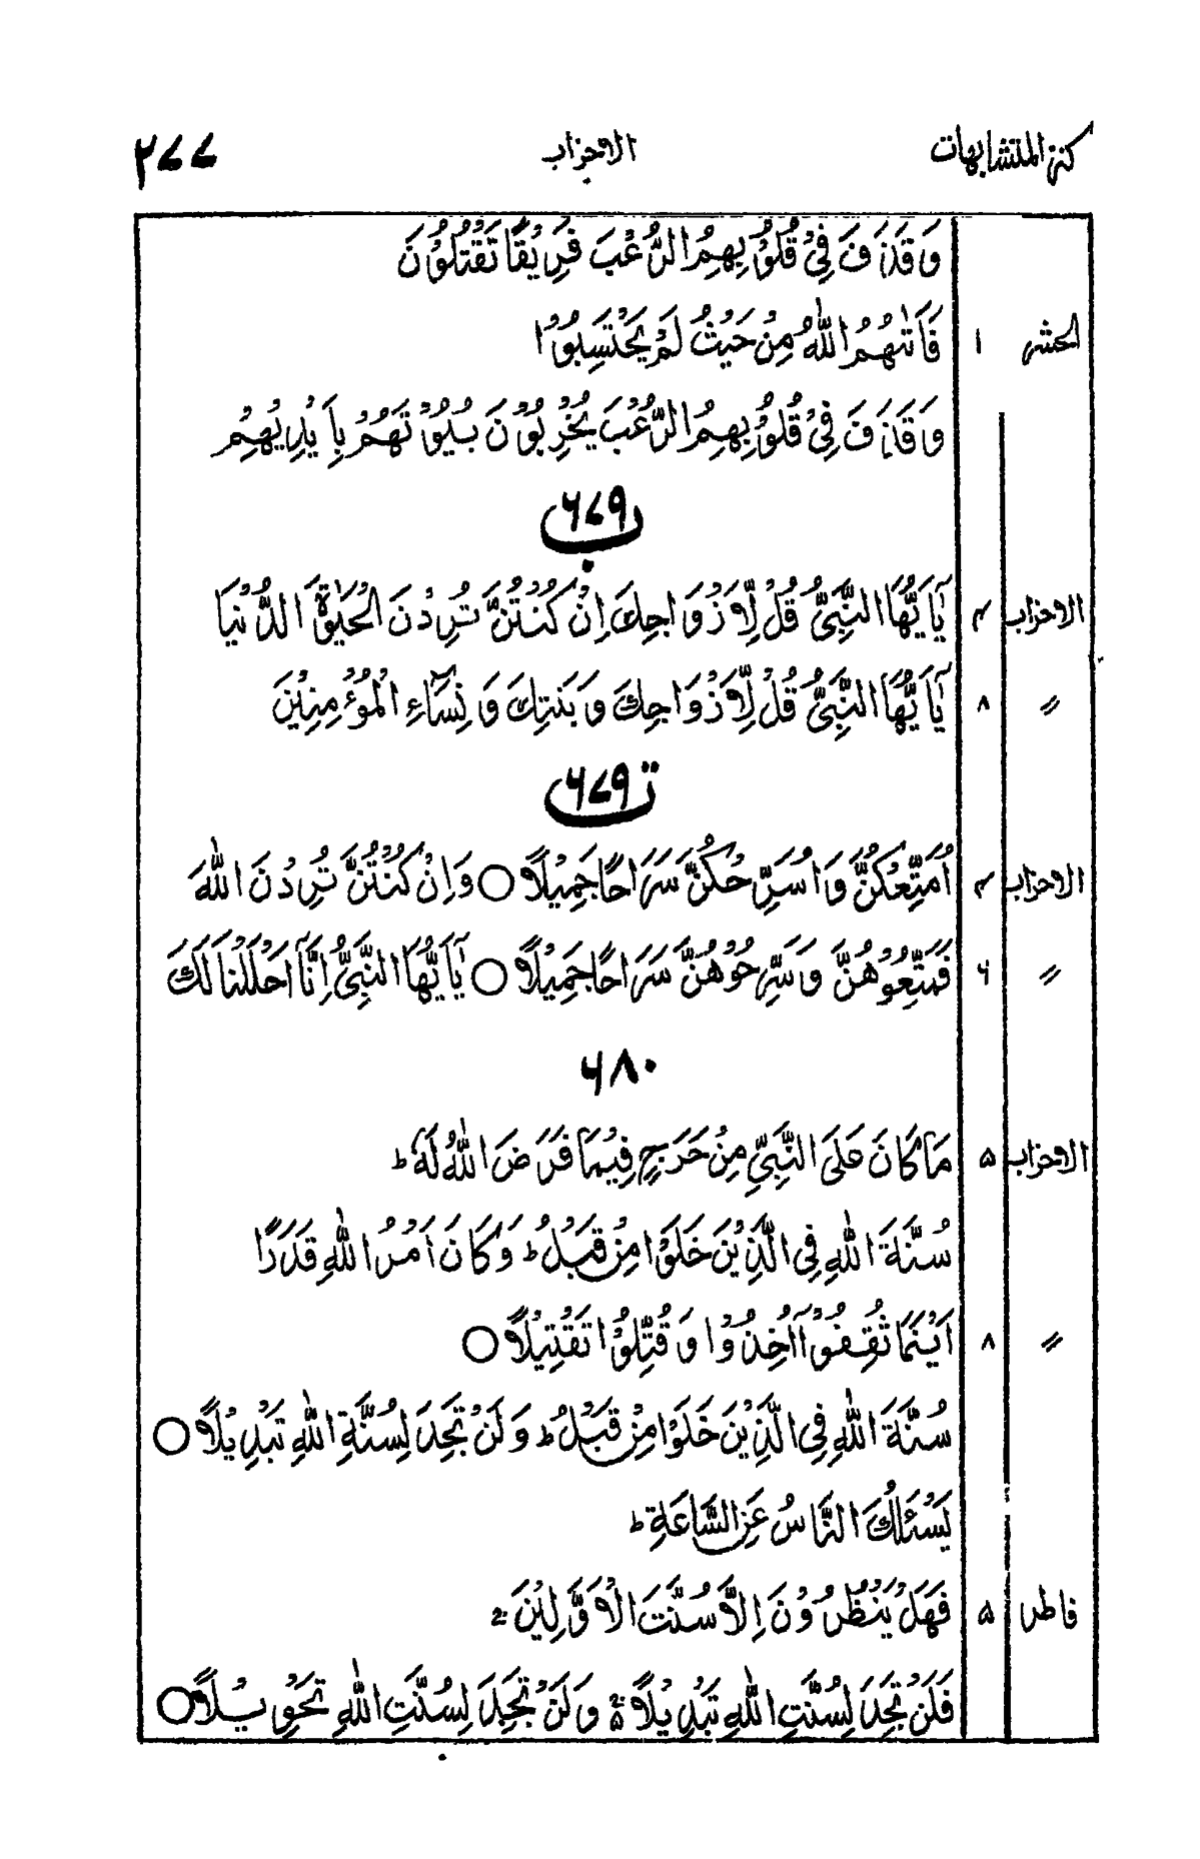 كنز المتشابهات الاحزاب ٢٧٧
وَقَذَفَ فِيْ قُلُوْبِهِمُ الرُّعْبَ فَرِيْقًا تَقْتُلُوْنَ
الحشر ١ فَاَتٰهُمُ اللّٰهُ مِنْ حَيْثُ لَمْ يَحْتَسِبُوْا
وَقَذَفَ فِيْ قُلُوْبِهِمُ الرُّعْبَ يُخْرِبُوْنَ بُيُوْتَهُمْ بِاَيْدِيْهِمْ
٦٧٩ ب
الاحزاب ٤ يٰۤاَيُّهَا النَّبِيُّ قُلْ لِّاَزْوَاجِكَ اِنْ كُنْتُنَّ تُرِدْنَ الْحَيٰوةَ الدُّنْيَا
〃 ٨ يٰۤاَيُّهَا النَّبِيُّ قُلْ لِّاَزْوَاجِكَ وَبَنٰتِكَ وَنِسَآءِ الْمُؤْمِنِيْنَ
٦٧٩ ت
الاحزاب ٤ اُمَتِّعْكُنَّ وَاُسَرِّحْكُنَّ سَرَاحًا جَمِيْلًا ○ وَاِنْ كُنْتُنَّ تُرِدْنَ اللّٰهَ
〃 ٦ فَمَتِّعُوْهُنَّ وَسَرِّحُوْهُنَّ سَرَاحًا جَمِيْلًا ○ يٰۤاَيُّهَا النَّبِيُّ اِنَّاۤ اَحْلَلْنَا لَكَ
٦٨٠
الاحزاب ٥ مَا كَانَ عَلَى النَّبِيِّ مِنْ حَرَجٍ فِيْمَا فَرَضَ اللّٰهُ لَهٗ ؕ
سُنَّةَ اللّٰهِ فِى الَّذِيْنَ خَلَوْا مِنْ قَبْلُ ؕ وَكَانَ اَمْرُ اللّٰهِ قَدَرًا
〃 ٨ اَيْنَمَا ثُقِفُوْۤا اُخِذُوْا وَقُتِّلُوْا تَقْتِيْلًا ○
سُنَّةَ اللّٰهِ فِى الَّذِيْنَ خَلَوْا مِنْ قَبْلُ ؕ وَلَنْ تَجِدَ لِسُنَّةِ اللّٰهِ تَبْدِيْلًا ○
يَسْئَلُكَ النَّاسُ عَنِ السَّاعَةِ ؕ
فاطر ٥ فَهَلْ يَنْظُرُوْنَ اِلَّا سُنَّتَ الْاَوَّلِيْنَ ۚ
فَلَنْ تَجِدَ لِسُنَّتِ اللّٰهِ تَبْدِيْلًا ۚ۬ وَلَنْ تَجِدَ لِسُنَّتِ اللّٰهِ تَحْوِيْلًا ○